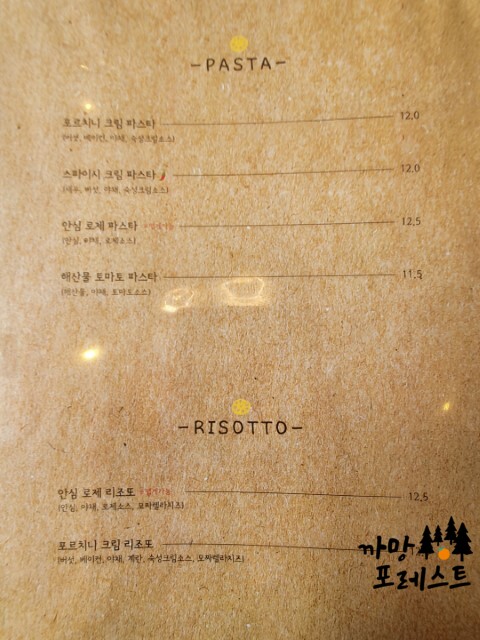 -PASTA-
포르치니 크림 파스타 12.0
(버섯, 베이컨, 야채, 숙성크림소스)
스파이시 크림 파스타 12.0
(새우, 버섯, 야채, 숙성크림소스)
안심 로제 파스타 12.5
(안심, 야채, 로제소스)
해산물 토마토 파스타 11.5
(해산물, 야채, 토마토소스)
-RISOTTO-
안심 로제 리조또 12.5
(안심, 야채, 로제소스, 모짜렐라치즈)
포르치니 크림 리조또
(버섯, 베이컨, 야채, 계란, 숙성크림소스, 모짜렐라치즈)
까망
포레스트